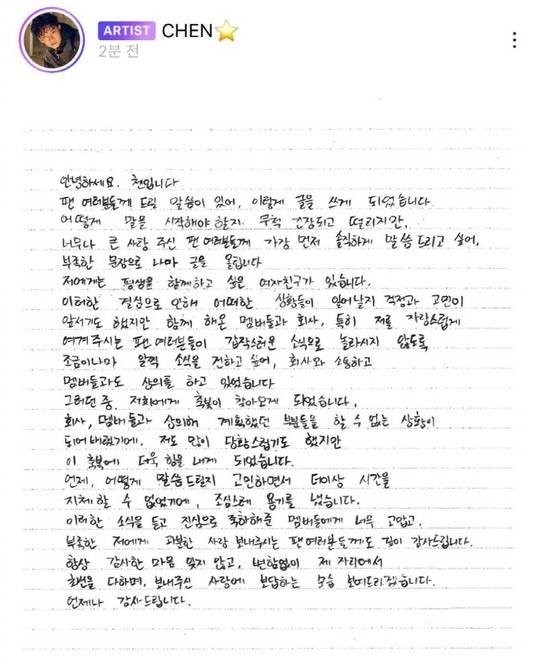 ARTIST CHEN⭐
2분 전
안녕하세요. 첸입니다
팬 여러분들께 드릴 말씀이 있어, 이렇게 글을 쓰게 되었습니다.
어떻게 말을 시작해야할지 무척 긴장되고 떨리지만,
너무나 큰 사랑 주신 팬 여러분들께 가장 먼저 솔직하게 말씀드리고 싶어,
부족한 문장으로 나마 글을 올립니다
저에게는 평생을 함께하고 싶은 여자친구가 있습니다.
이러한 결심으로 인해 어떠한 상황들이 일어날지 걱정과 고민이
앞서기도 했지만 함께 해온 멤버들과 회사, 특히 저를 자랑스럽게
여겨주시는 팬 여러분들이 갑작스러운 소식으로 놀라시지 않도록
조금이나마 일찍 소식을 전하고 싶어, 회사와 소통하고
멤버들과도 상의를 하고 있었습니다
그러던 중, 저희에게 축복이 찾아오게 되었습니다.
회사, 멤버들과 상의해 계획했던 부분들을 할 수 없는 상황이
되어버렸기에, 저도 많이 당황스럽기도 했지만
이 축복에 더욱 힘을 내게 되었습니다.
언제, 어떻게 말씀드릴지 고민하면서 더이상 시간을
지체 할 수 없었기에, 조심스레 용기를 냈습니다.
이러한 소식을 듣고 진심으로 축하해준 멤버들에게 너무 고맙고,
부족한 저에게 과분한 사랑 보내주시는 팬 여러분들께도 깊이 감사드립니다.
항상 감사한 마음 잊지 않고, 변함없이 제 자리에서
최선을 다하며, 보내주신 사랑에 보답하는 모습 보여드리겠습니다.
언제나 감사드립니다.